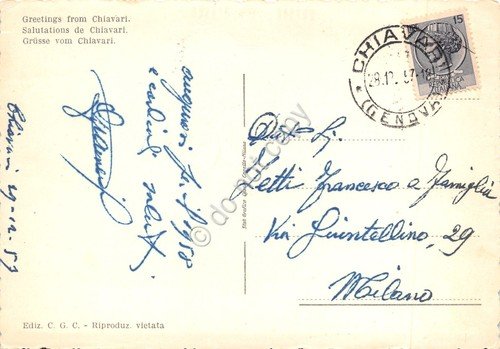 Greetings from Chiavari.
Salutations de Chiavari.
Grüsse vom Chiavari.
15
CHIAVARI
(GENOVA)
auguri 1958
e cordiali saluti
Chiavari 29-12-57
Letti Francesco e Famiglia
Via Giuntellino, 29
Milano
Ediz. C. G. C. - Riproduz. vietata
do not copy